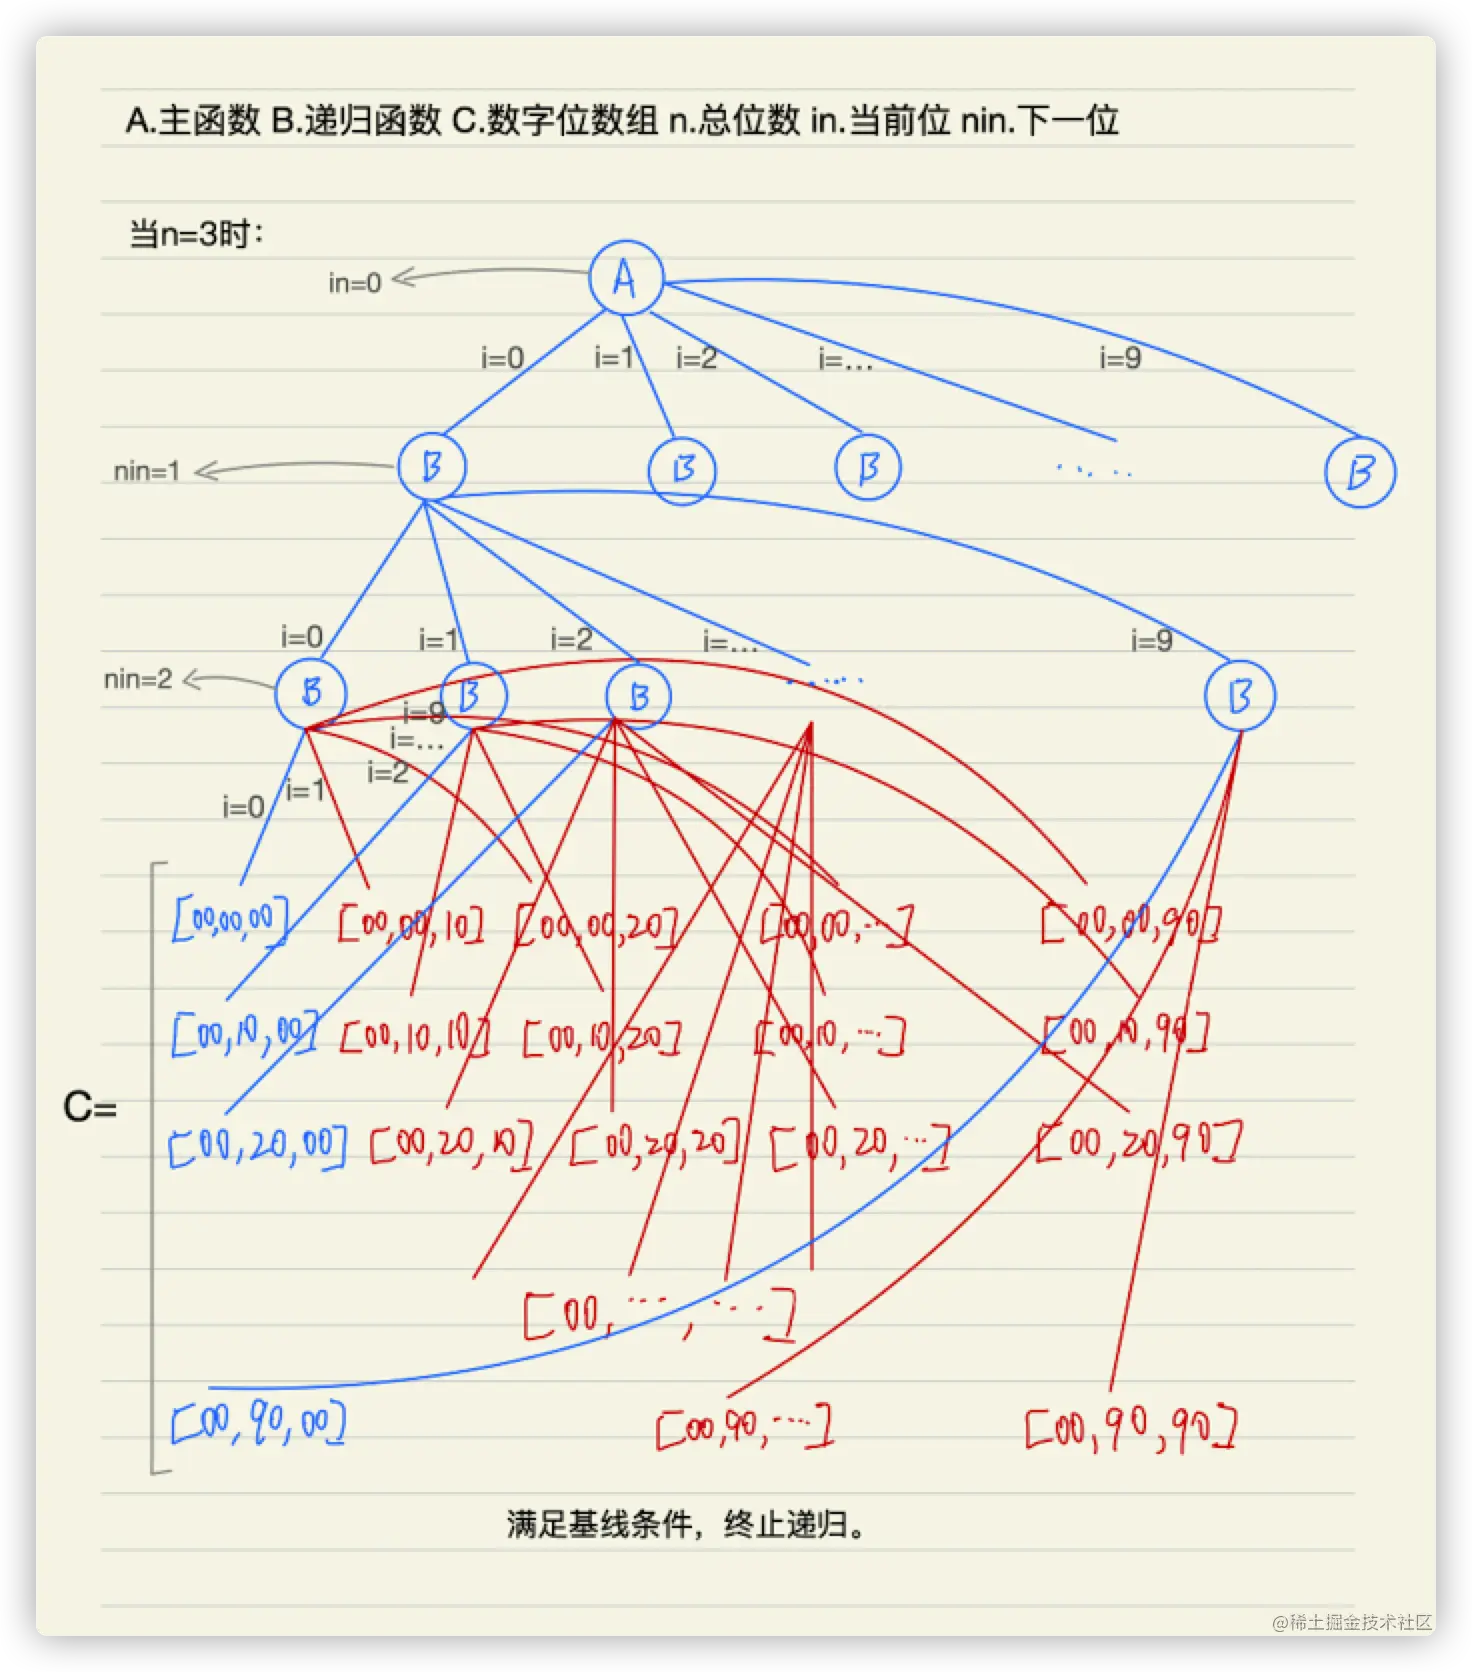 A.主函数 B.递归函数 C.数字位数组 n.总位数 in.当前位 nin.下一位
当n=3时：
A
in=0
i=0 i=1 i=2 i=... i=9
nin=1
B B B ..... B
i=0 i=1 i=2 i=... i=9
nin=2
B B B ...... B
i=9
i=...
i=2
i=1
i=0
[00,00,00] [00,00,10] [00,00,20] [00,00,...] [00,00,90]
[00,10,00] [00,10,10] [00,10,20] [00,10,...] [00,10,90]
C=
[00,20,00] [00,20,10] [00,20,20] [00,20,...] [00,20,90]
[00,...,...]
[00,90,00] [00,90,...] [00,90,90]
满足基线条件，终止递归。
@稀土掘金技术社区